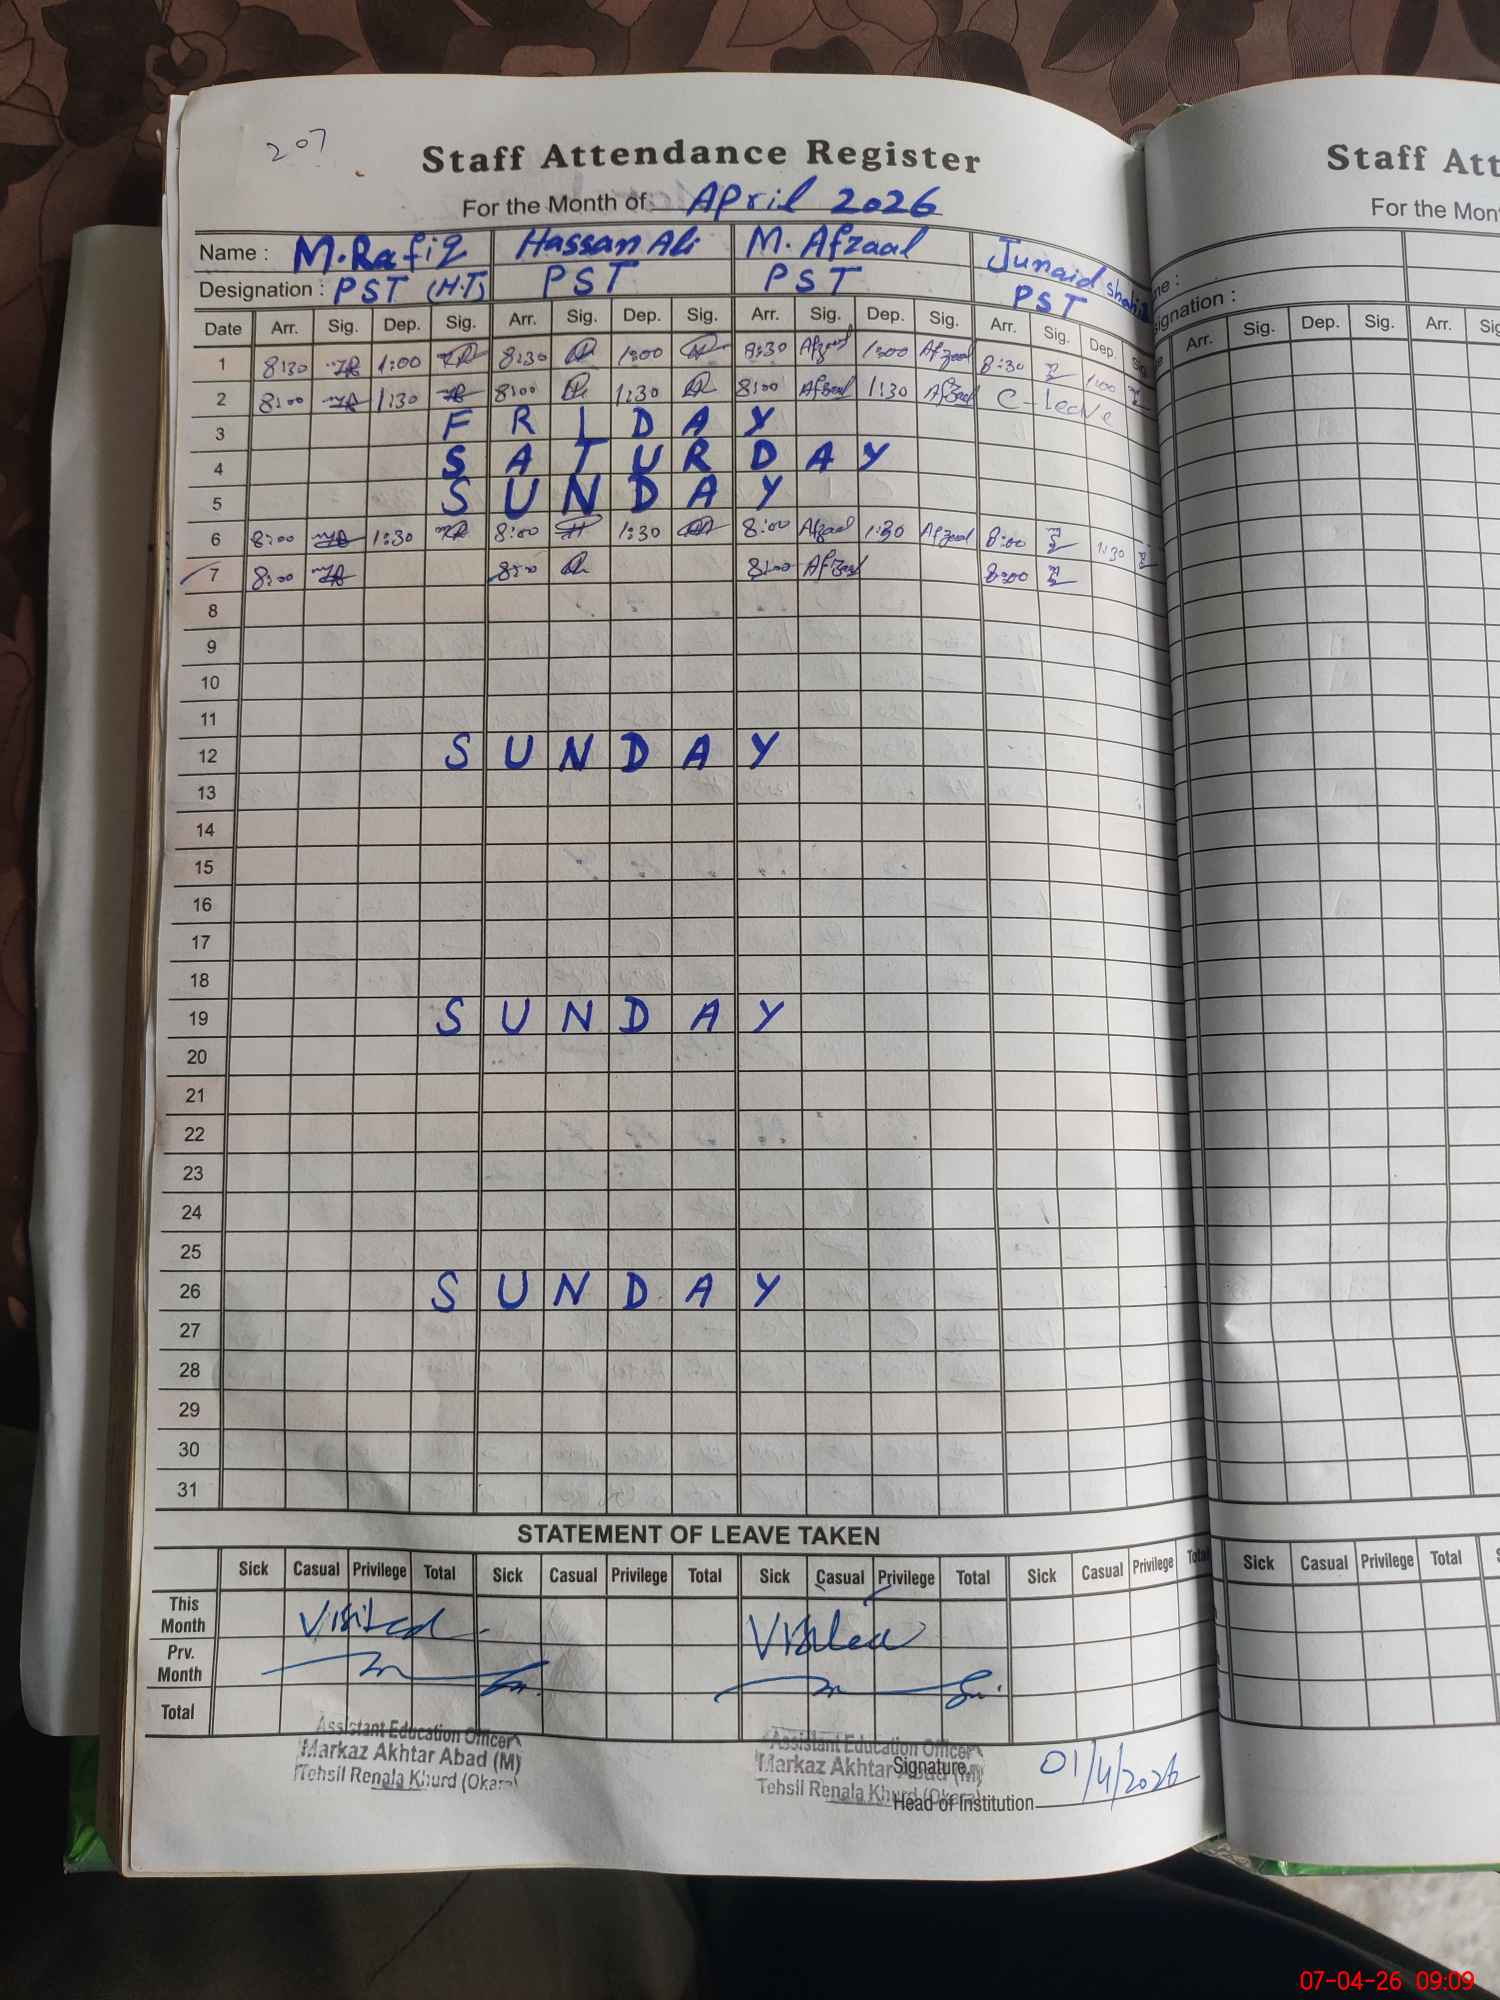 207
Staff Attendance Register
For the Month of April 2026
Name : M. Rafiq Hassan Ali M. Afzaal Junaid
Designation : PST (H.T) PST PST PST
Date Arr. Sig. Dep. Sig. Arr. Sig. Dep. Sig. Arr. Sig. Dep. Sig. Arr. Sig. Dep.
1 8:30 1:00 8:30 1:00 8:30 Afzaal 1:00 Afzaal 8:30 1:00
2 8:00 1:30 8:00 1:30 8:00 Afzaal 1:30 Afzaal C-Leave
3 FRIDAY
4 SATURDAY
5 SUNDAY
6 8:00 1:30 8:00 1:30 8:00 Afzaal 1:30 Afzaal 8:00 1:30
7 8:00 8:00 8:00 Afzaal 8:00
8
9
10
11
12 SUNDAY
13
14
15
16
17
18
19 SUNDAY
20
21
22
23
24
25
26 SUNDAY
27
28
29
30
31
STATEMENT OF LEAVE TAKEN
Sick Casual Privilege Total Sick Casual Privilege Total Sick Casual Privilege Total Sick Casual Privilege Total
This Month Visited Visited
Prv. Month
Total
Assistant Education Officer
Markaz Akhtar Abad (M)
Tehsil Renala Khurd (Okara)
Assistant Education Officer
Markaz Akhtar Abad (M)
Tehsil Renala Khurd (Okara)
Signature
Head of Institution 01/4/2026
Staff Att
For the Mon
me :
signation :
Arr. Sig. Dep. Sig. Arr.
Sick Casual Privilege Total
07-04-26 09:09